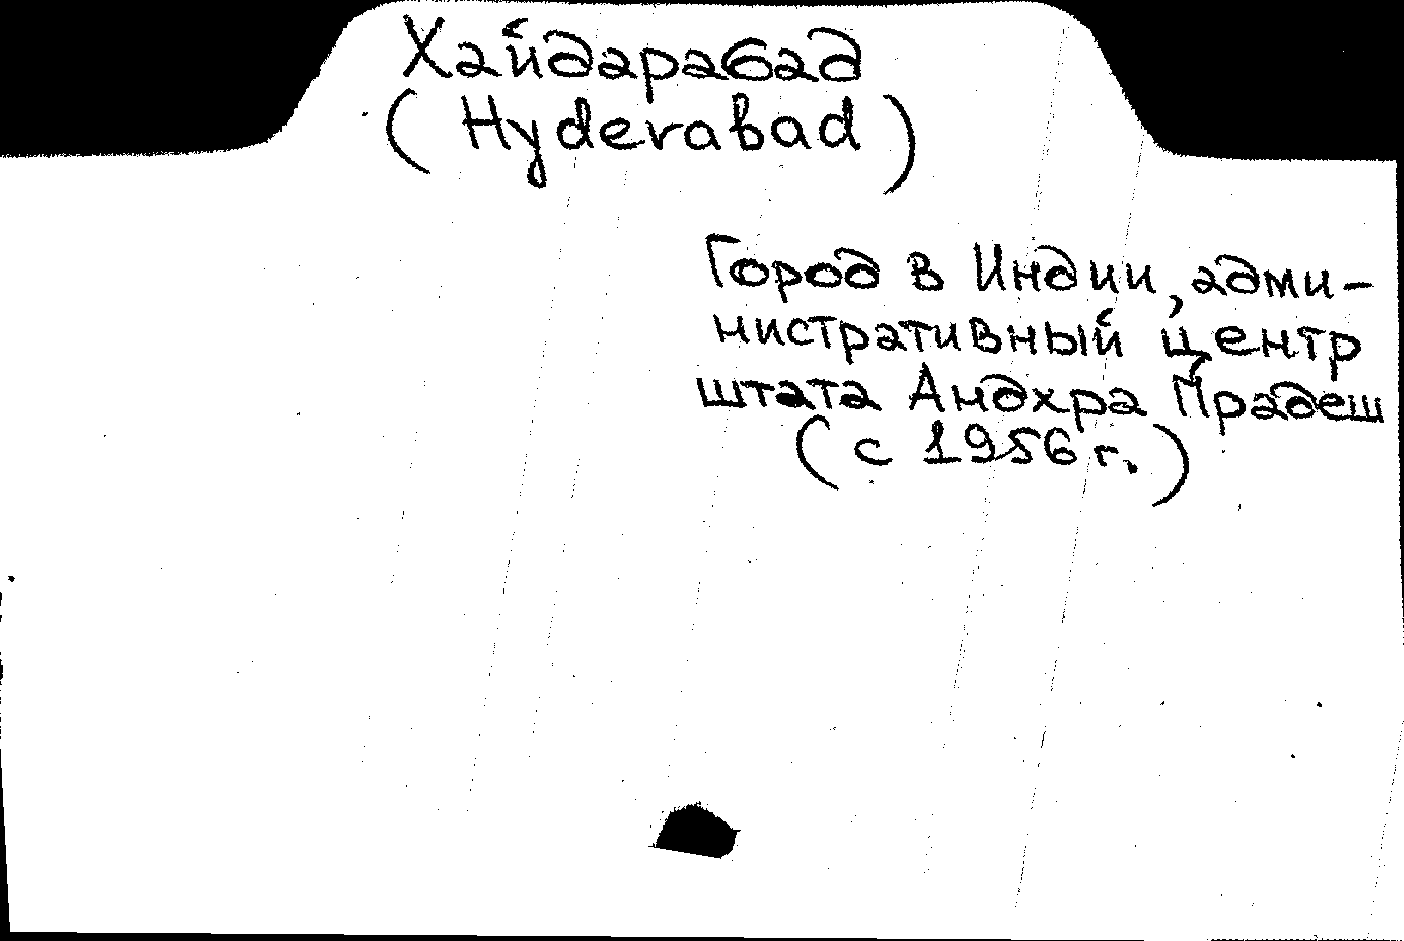 Хайдарабад
(Hyderabad)
Город в Индии, адми-
нистративный центр
штата Андхра Прадеш
(с 1956 г.)